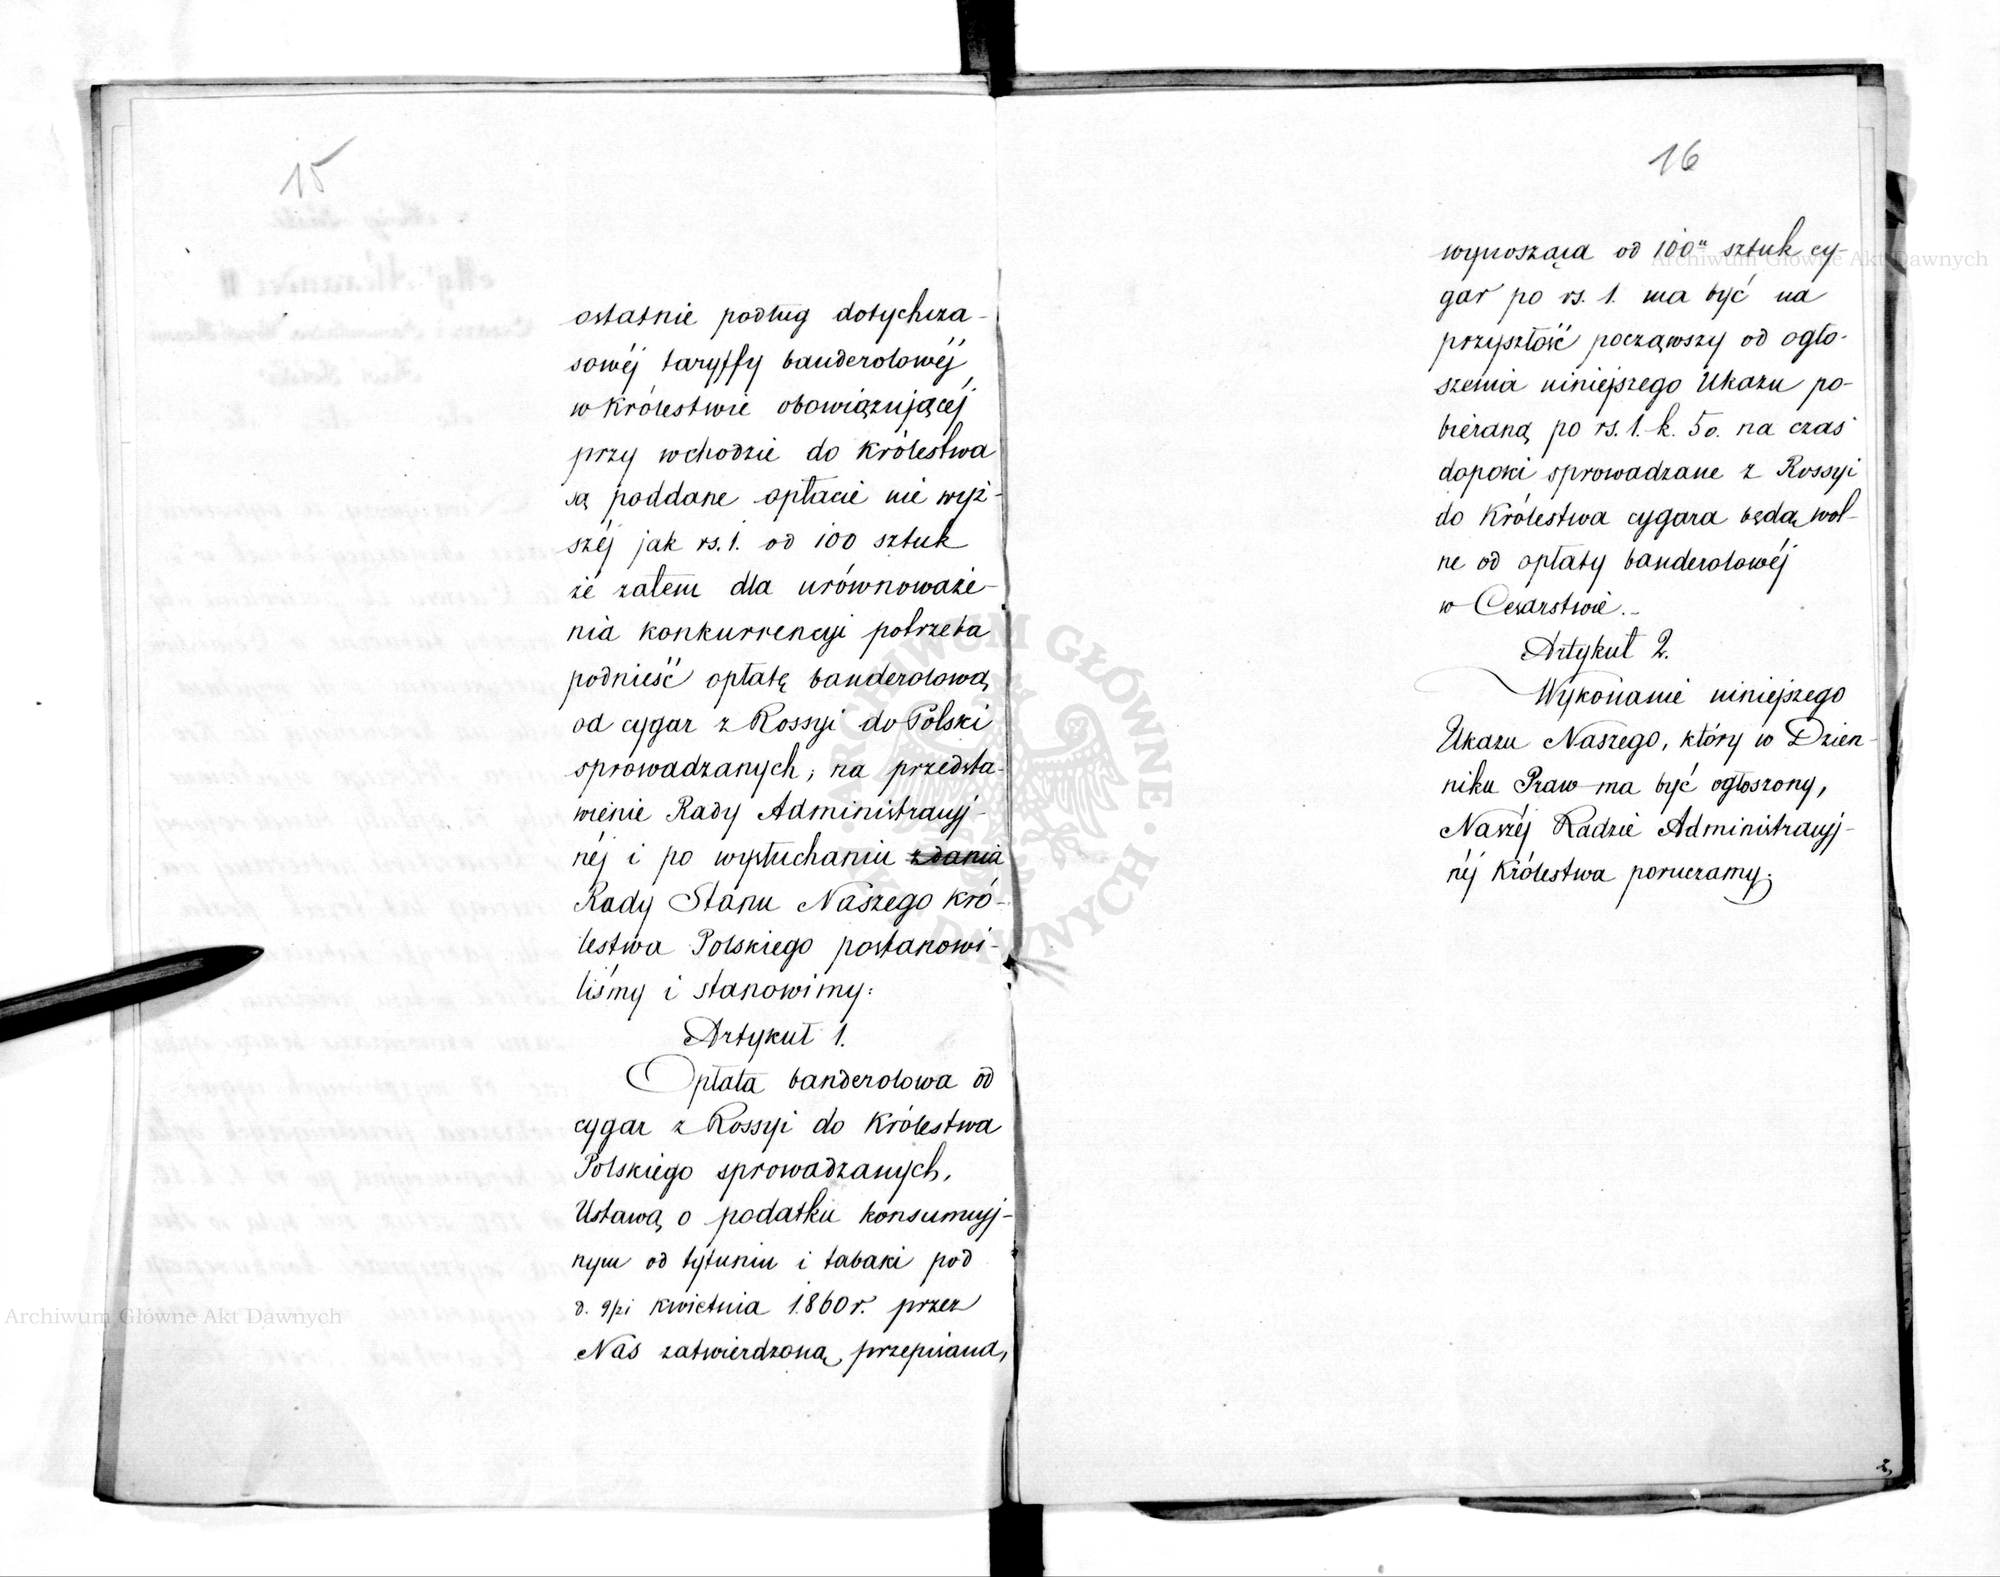 15
ostatnie podług dotychcza-
sowéj taryffy banderolowéj
w Królestwie obowiązującéj,
przy wchodzie do Królestwa
są poddane opłacie nie wyż-
széj jak rs. 1. od 100 sztuk
że zatem dla urównoważe-
nia konkurrencyi potrzeba
podnieść opłatę banderolową
od cygar z Rossyi do Polski
sprowadzanych; na przedsta-
wienie Rady Administracyj-
néj i po wysłuchaniu zdania
Rady Stanu Naszego Kró-
lestwa Polskiego postanowi-
liśmy i stanowimy:
Artykuł 1.
Opłata banderolowa od
cygar z Rossyi do Królestwa
Polskiego sprowadzanych,
Ustawą o podatku konsumcyj-
nym od tytuniu i tabaki pod
d. 9/21 kwietnia 1860 r. przez
Nas zatwierdzoną, przepisana,
16
wynosząca od 100" sztuk cy-
gar po rs. 1. ma być na
przyszłość począwszy od ogło-
szenia niniejszego Ukazu po-
bieraną po rs. 1. k. 50. na czas
dopoki sprowadzane z Rossyi
do Królestwa cygara będą wol-
ne od opłaty banderolowéj
w Cesarstwie.-
Artykuł 2.
Wykonanie niniejszego
Ukazu Naszego, który w Dzien-
niku Praw ma być ogłoszony,
Naszéj Radzie Administracyj-
néj Królestwa poruczamy.
2,
Archiwum Główne Akt Dawnych
Archiwum Główne Akt Dawnych
ARCHIWUM GŁÓWNE AKT DAWNYCH